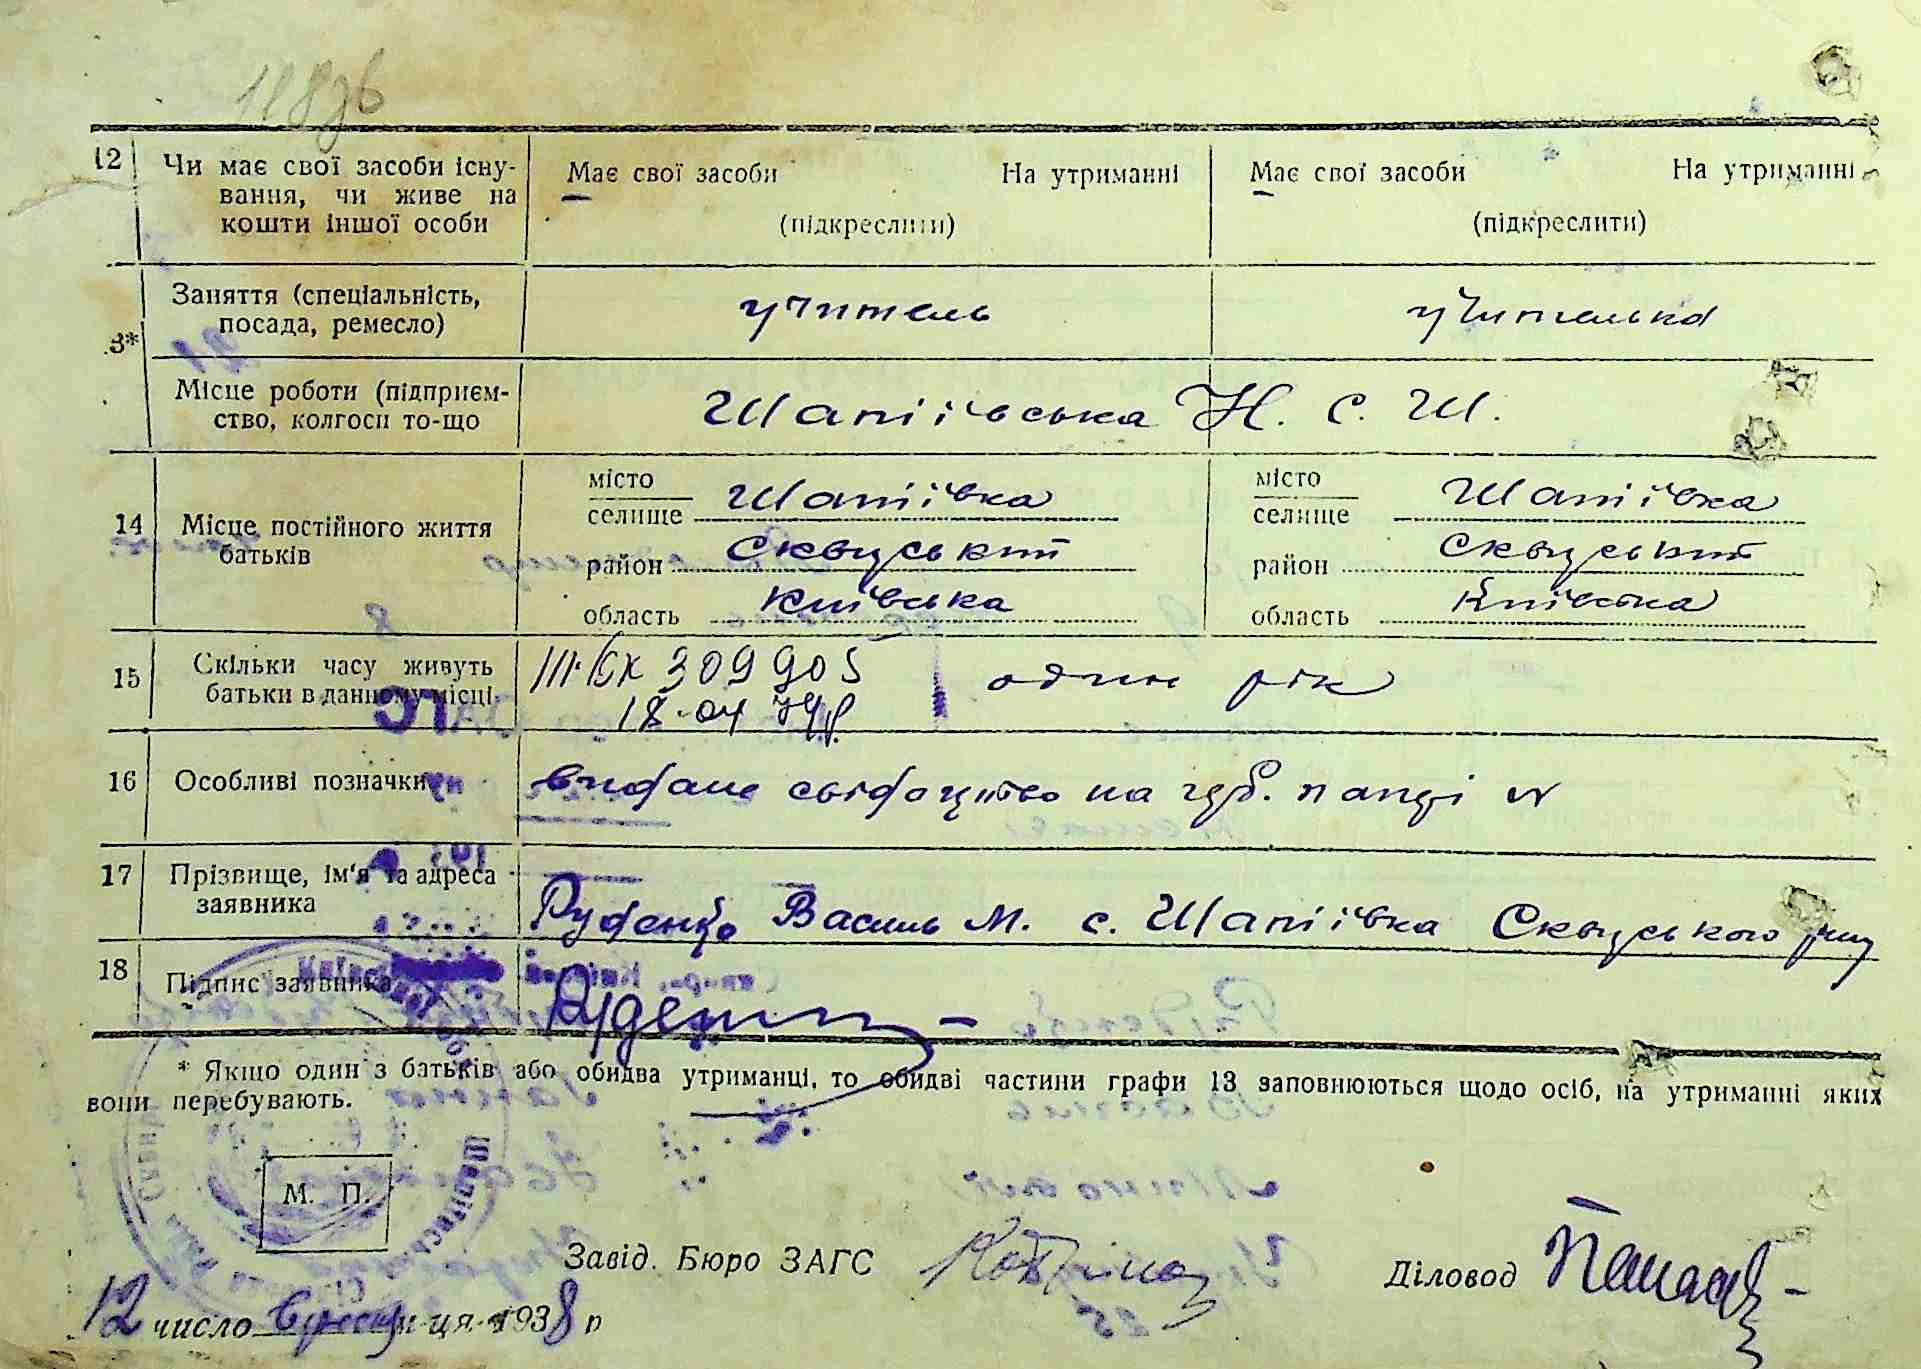 12 Чи має свої засоби існу-
вання, чи живе на
кошти іншої особи
Має свої засоби На утриманні
(підкреслити)
Має свої засоби На утриманні
(підкреслити)
3* Заняття (спеціальність,
посада, ремесло)
учитель
учителька
Місце роботи (підприєм-
ство, колгосп то-що
Шапіївська Н. С. Ш.
14 Місце постійного життя
батьків
місто
селище Шапіївка
район Сквирський
область Київська
місто
селище Шапіївка
район Сквирський
область Київська
15 Скільки часу живуть
батьки в данному місці
309905
18.04
один рік
16 Особливі позначки
видане свідоцтво на
17 Прізвище, ім'я та адреса
заявника
Руденко Василь М. с. Шапіївка Сквирського
18 Підпис заявника
* Якщо один з батьків або обидва утриманці, то обидві частини графи 13 заповнюються щодо осіб, на утриманні яких
вони перебувають.
М. П.
Завід. Бюро ЗАГС
Діловод
12 число вересня м-ця 1938 р